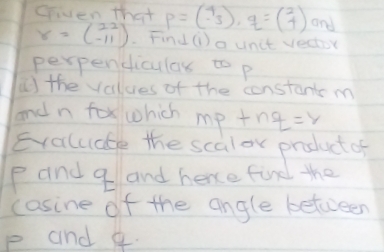 Given that p = (4 -3), q = (2 7) and
r = (22 -11). Find (i) a unit vector
perpendicular to p
ii) the values of the constants m
and n for which mp + nq = r
Evaluate the scalar product of
p and q and hence find the
cosine of the angle between
p and q.